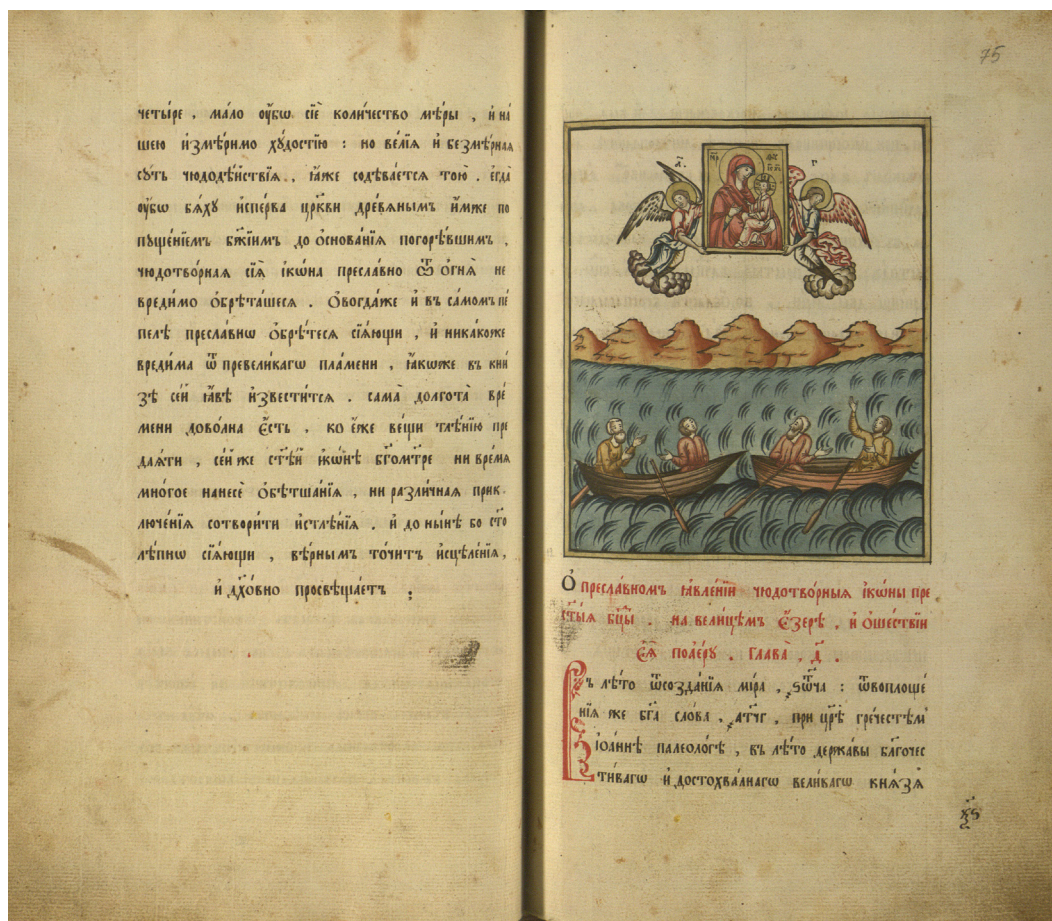 четы́ре , ма́ло оу҆́бѡ сїѐ коли́чество мѣ́ры , и҆ на́
шею и҆змѣ́римо хꙋ́достїю : но ве́лїѧ и҆ безмѣ́рнаѧ
сꙋ́ть чюдодѣ́йствїѧ , ꙗ҆́же содѣва́етсѧ то́ю . є҆гда̀
оу҆́бѡ бѧ́хꙋ и҆спе́рва цр҃кви древѧ́нымъ и҆́мже по
пꙋще́нїемъ бж҃їимъ до ѻ҆снова́нїѧ погорѣ́вшимъ ,
чюдотво́рнаѧ сїѧ̀ і҆кѡ́на пресла́вно ѿ ѻ҆гнѧ̀ не
вреди́мо ѻ҆брѣта́шесѧ . Ѻ҆вогда́же и҆ въ са́момъ пе́
пелѣ̀ пресла́внѡ ѻ҆брѣ́тесѧ сїѧ́ющи , и҆ никако́же
вреди́ма ѿ превели́кагѡ пла́мени , ꙗ҆́коже въ кни́
зѣ се́й ꙗ҆́вѣ и҆звести́тсѧ . сама̀ долгота̀ вре́
мени дово́лна є҆́сть , ко є҆́же ве́щи тлѣ́нїю пре
даѧ́ти , се́й же ст҃ѣ́й і҆кѡ́нѣ бг҃омт҃ре ни вре́мѧ
мно́гое нанесѐ ѻ҆бѣтша́нїѧ , ни разли́чнаѧ прик
люче́нїѧ сотвори́ти и҆стлѣ́нїѧ . и҆ до ны́нѣ бо ст҃о
лѣ́пнѡ сїѧ́ющи , вѣ́рнымъ то́читъ и҆сцѣле́нїѧ ,
и҆ дх҃о́вно просвѣща́етъ ;
75
Ѻ҆ пресла́вномъ ꙗ҆вле́нїи чюдотво́рныѧ і҆кѡ́ны пре
ст҃ы́ѧ бц҃ы . на вели́цѣмъ є҆́зерѣ , и҆ ѻ҆ше́ствїи
є҆ѧ̀ поае́рꙋ . Глава̀ , д҃ .
Въ лѣ́то ѿсозда́нїѧ мі́ра , ҂ѕѡ҃ча : ѿвоплоще́
нїѧ же бг҃а сло́ва , ҂ат҃чг , при цр҃ѣ гре́честѣмъ
і҆ѡа́ннѣ палеоло́гѣ , въ лѣ́то держа́вы бл҃гочес
ти́вагѡ и҆ достохва́лнагѡ вели́кагѡ кнѧ́зѧ